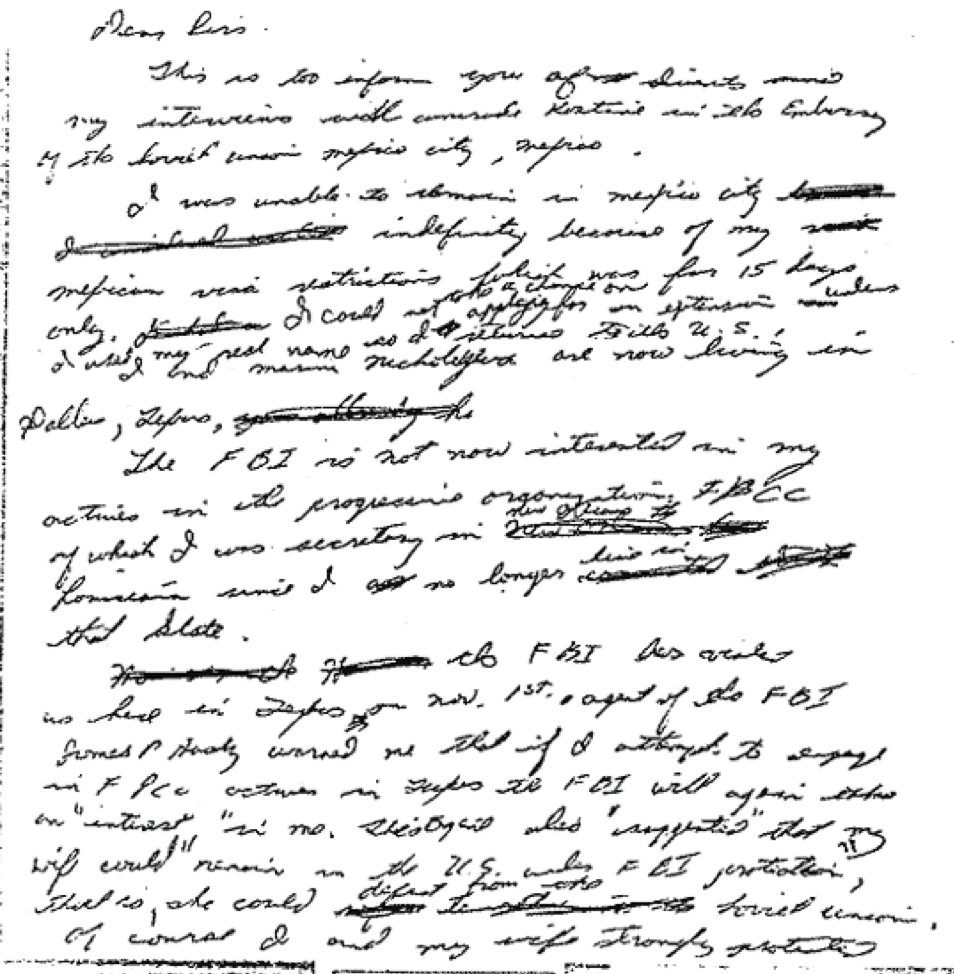 Dear Sirs.
This is too inform you of
my interviews with comrade Kostine in the Embassy
of the Soviet Union Mexico City, Mexico.
I was unable to remain in Mexico City
indefinity because of my
Mexican visa restrictions which was for 15 days
take a chance on
only. I could not applying for an extension unless
I used my real name so I returned to the U.S.
I and Marina are now living in
Dallas, Texas,
The FBI is not now interested in my
in the progressive organization F.P.C.C
New Orleans
of which I was secretary in
live in
Louisiana since I no longer
that State.
the FBI has visited
us here in Texas on Nov. 1st. agent of the FBI
James P Hasty warned me that if I attempt to engage
in F P C C actives in Texas the FBI will again take
an "interest" in me. This agent also "suggested" that my
wife could "remain in the U.S. under FBI protection",
defect from the
that is, she could Soviet Union.
Of course I and my wife strongly protested